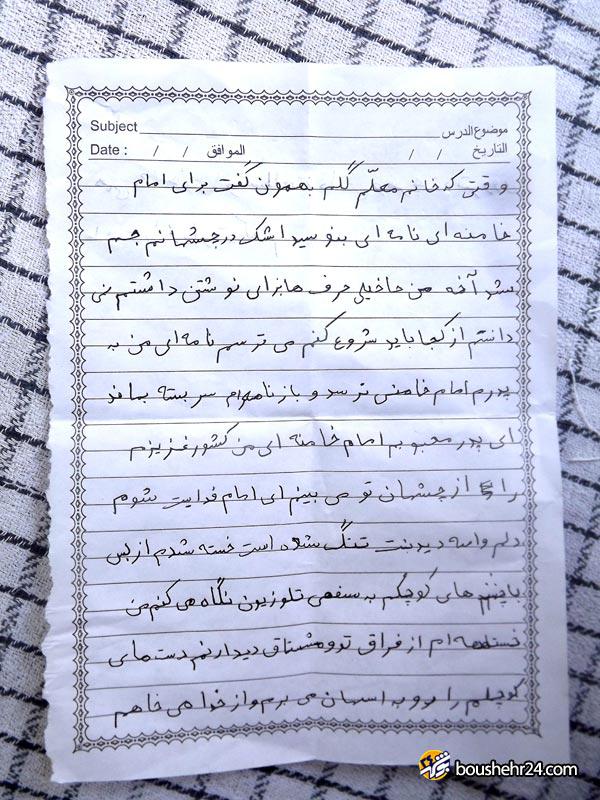 Subject موضوع الدرس
Date : / / الموافق / / التاريخ
وقتی که خانم معلّم گلم بهمون گفت برای امام
خامنه ای نامه ای بنوسید اشک در چشمانم جم
شد آخه من خاخیلی حرف ها برای نوشتن داشتم نمی
دانستم از کجا باید شروع کنم می ترسم نامه ای من به
پدرم امام خامنی نرسد و باز نامه ام سر بسته بماند
ای پدر محبوبم امام خامنه ای من کشور عزیزم
را از چشمان تو می بینم ای امام فدایت شوم
دلم واسه دیدنت تنگ شده است خسته شدم از بس
باچشم های کوچکم به سفهی تلوزیون نگاه می کنم من
خسته ام از فراق تو و مشتاق دیدارتم دست های
کوچکم را رو به اسمان می برم و از خدا می خاهم
boushehr24.com